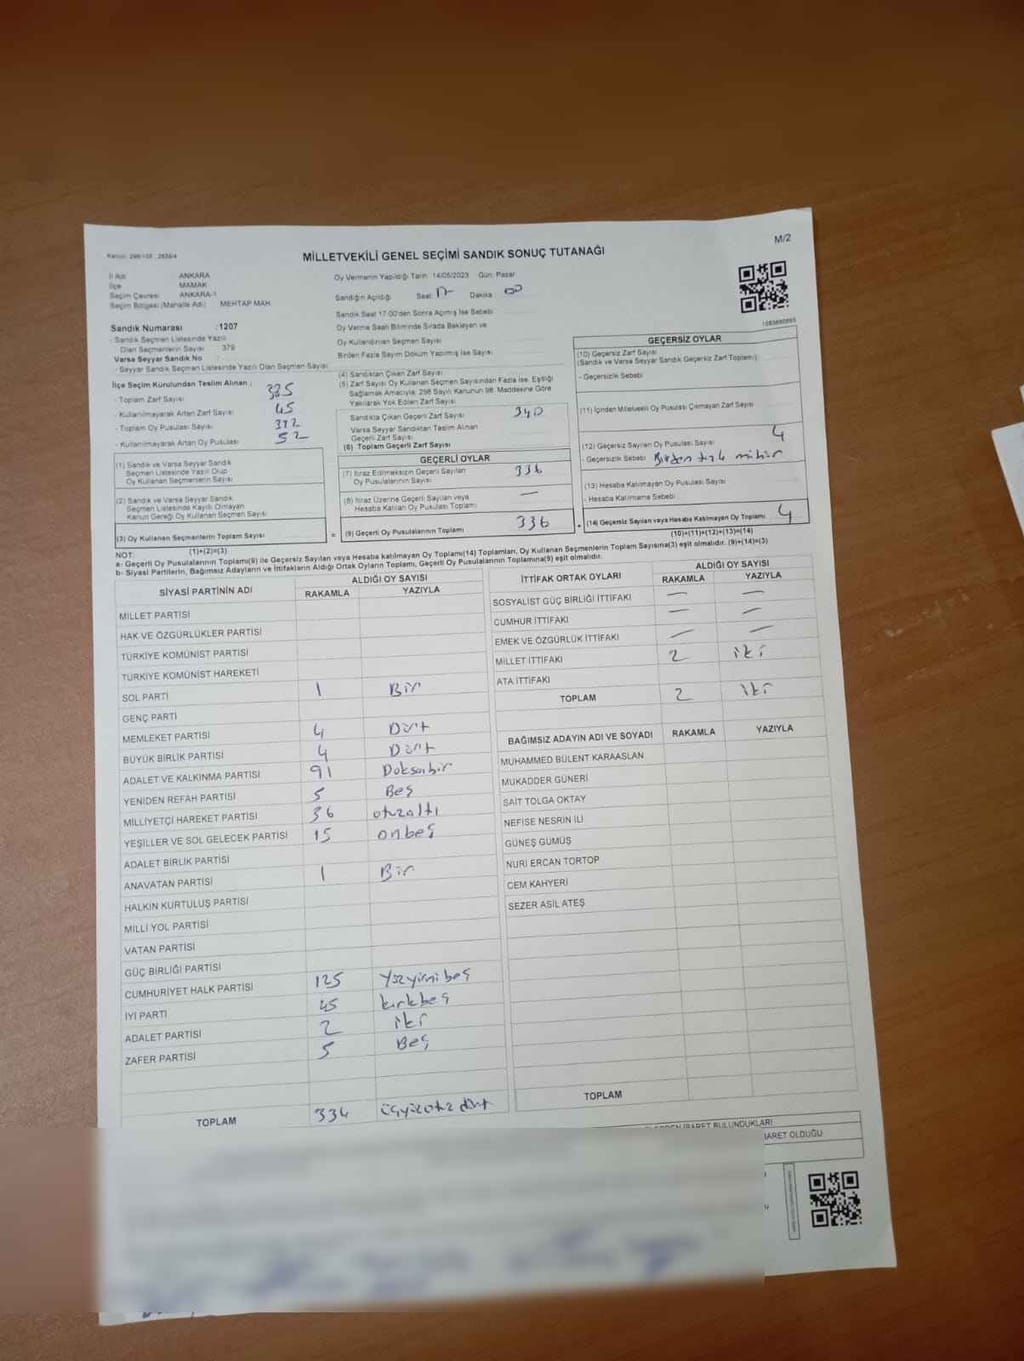 MİLLETVEKİLİ GENEL SEÇİMİ SANDIK SONUÇ TUTANAĞI
M/2
İl Adı ANKARA
İlçe MAMAK
Seçim Çevresi ANKARA-1
Seçim Bölgesi (Mahalle Adı) MEHTAP MAH.
Sandık Numarası :1207
- Sandık Seçmen Listesinde Yazılı
Olan Seçmenlerin Sayısı : 379
Varsa Seyyar Sandık No
- Seyyar Sandık Seçmen Listesinde Yazılı Olan Seçmen Sayısı
İlçe Seçim Kurulundan Teslim Alınan ;
- Toplam Zarf Sayısı 385
- Kullanılmayarak Artan Zarf Sayısı 45
- Toplam Oy Pusulası 392
- Kullanılmayarak Artan Oy Pusulası 52
(1) Sandık ve Varsa Seyyar Sandık
Seçmen Listesinde Yazılı Olup
Oy Kullanan Seçmenlerin Sayısı
(2) Sandık ve Varsa Seyyar Sandık
Seçmen Listesinde Kayıtlı Olmayan
Kanun Gereği Oy Kullanan Seçmen Sayısı
(3) Oy Kullanan Seçmenlerin Toplam Sayısı
(1)+(2)=(3)
Oy Vermenin Yapıldığı Tarih: 14/05/2023 Gün: Pazar
Sandığın Açıldığı Saat: 17 Dakika : 00
Sandık Saat 17:00'den Sonra Açılmış İse Sebebi
Oy Verme Saati Bitiminde Sırada Bekleyen ve
Oy Kullandırılan Seçmen Sayısı
Birden Fazla Sayım Döküm Yapılmış İse Sayısı
(4) Sandıktan Çıkan Zarf Sayısı
(5) Zarf Sayısı Oy Kullanan Seçmen Sayısından Fazla İse, Eşitliği
Sağlamak Amacıyla; 298 Sayılı Kanunun 98. Maddesine Göre
Yakılarak Yok Edilen Zarf Sayısı
Sandıkta Çıkan Geçerli Zarf Sayısı 340
Varsa Seyyar Sandıktan Teslim Alınan
Geçerli Zarf Sayısı
(6) Toplam Geçerli Zarf Sayısı
GEÇERLİ OYLAR
(7) İtiraz Edilmeksizin Geçerli Sayılan
Oy Pusulasının Sayısı 336
(8) İtiraz Üzerine Geçerli Sayılan veya
Hesaba Katılan Oy Pusulası Toplamı —
= (9) Geçerli Oy Pusulalarının Toplamı 336
GEÇERSİZ OYLAR
(10) Geçersiz Zarf Sayısı
(Sandık ve Varsa Seyyar Sandık Geçersiz Zarf Toplamı)
- Geçersizlik Sebebi
(11) İçinden Milletvekili Oy Pusulası Çıkmayan Zarf Sayısı
(12) Geçersiz Sayılan Oy Pusulası Sayısı 4
- Geçersizlik Sebebi Birden fazla mühür
(13) Hesaba Katılmayan Oy Pusulası Sayısı
- Hesaba Katılmama Sebebi
+ (14) Geçersiz Sayılan veya Hesaba Katılmayan Oy Toplamı 4
(10)+(11)+(12)+(13)=(14)
NOT:
a- Geçerli Oy Pusulalarının Toplamı(9) ile Geçersiz Sayılan veya Hesaba katılmayan Oy Toplamı(14) Toplamları, Oy Kullanan Seçmenlerin Toplam Sayısına(3) eşit olmalıdır. (9)+(14)=(3)
b- Siyasi Partilerin, Bağımsız Adayların ve İttifakların Aldığı Ortak Oyların Toplamı, Geçerli Oy Pusulalarının Toplamına(9) eşit olmalıdır.
SİYASİ PARTİNİN ADI ALDIĞI OY SAYISI
RAKAMLA YAZIYLA
MİLLET PARTİSİ
HAK VE ÖZGÜRLÜKLER PARTİSİ
TÜRKİYE KOMÜNİST PARTİSİ
TÜRKİYE KOMÜNİST HAREKETİ
SOL PARTİ 1 Bir
GENÇ PARTİ
MEMLEKET PARTİSİ 4 Dört
BÜYÜK BİRLİK PARTİSİ 4 Dört
ADALET VE KALKINMA PARTİSİ 91 Doksanbir
YENİDEN REFAH PARTİSİ 5 Beş
MİLLİYETÇİ HAREKET PARTİSİ 36 otuzaltı
YEŞİLLER VE SOL GELECEK PARTİSİ 15 onbeş
ADALET BİRLİK PARTİSİ
ANAVATAN PARTİSİ 1 Bir
HALKIN KURTULUŞ PARTİSİ
MİLLİ YOL PARTİSİ
VATAN PARTİSİ
GÜÇ BİRLİĞİ PARTİSİ
CUMHURİYET HALK PARTİSİ 125 Yüzyirmibeş
İYİ PARTİ 45 kırkbeş
ADALET PARTİSİ 2 iki
ZAFER PARTİSİ 5 Beş
TOPLAM 334 üçyüzotuzdört
İTTİFAK ORTAK OYLARI ALDIĞI OY SAYISI
RAKAMLA YAZIYLA
SOSYALİST GÜÇ BİRLİĞİ İTTİFAKI — —
CUMHUR İTTİFAKI — —
EMEK VE ÖZGÜRLÜK İTTİFAKI — —
MİLLET İTTİFAKI 2 iki
ATA İTTİFAKI
TOPLAM 2 iki
BAĞIMSIZ ADAYIN ADI VE SOYADI RAKAMLA YAZIYLA
MUHAMMED BÜLENT KARAASLAN
MUKADDER GÜNERİ
SAİT TOLGA OKTAY
NEFİSE NESRİN İLİ
GÜNEŞ GÜMÜŞ
NURİ ERCAN TORTOP
CEM KAHYERİ
SEZER ASİL ATEŞ
TOPLAM
İBARET BULUNDUKLARI
İBARET OLDUĞU